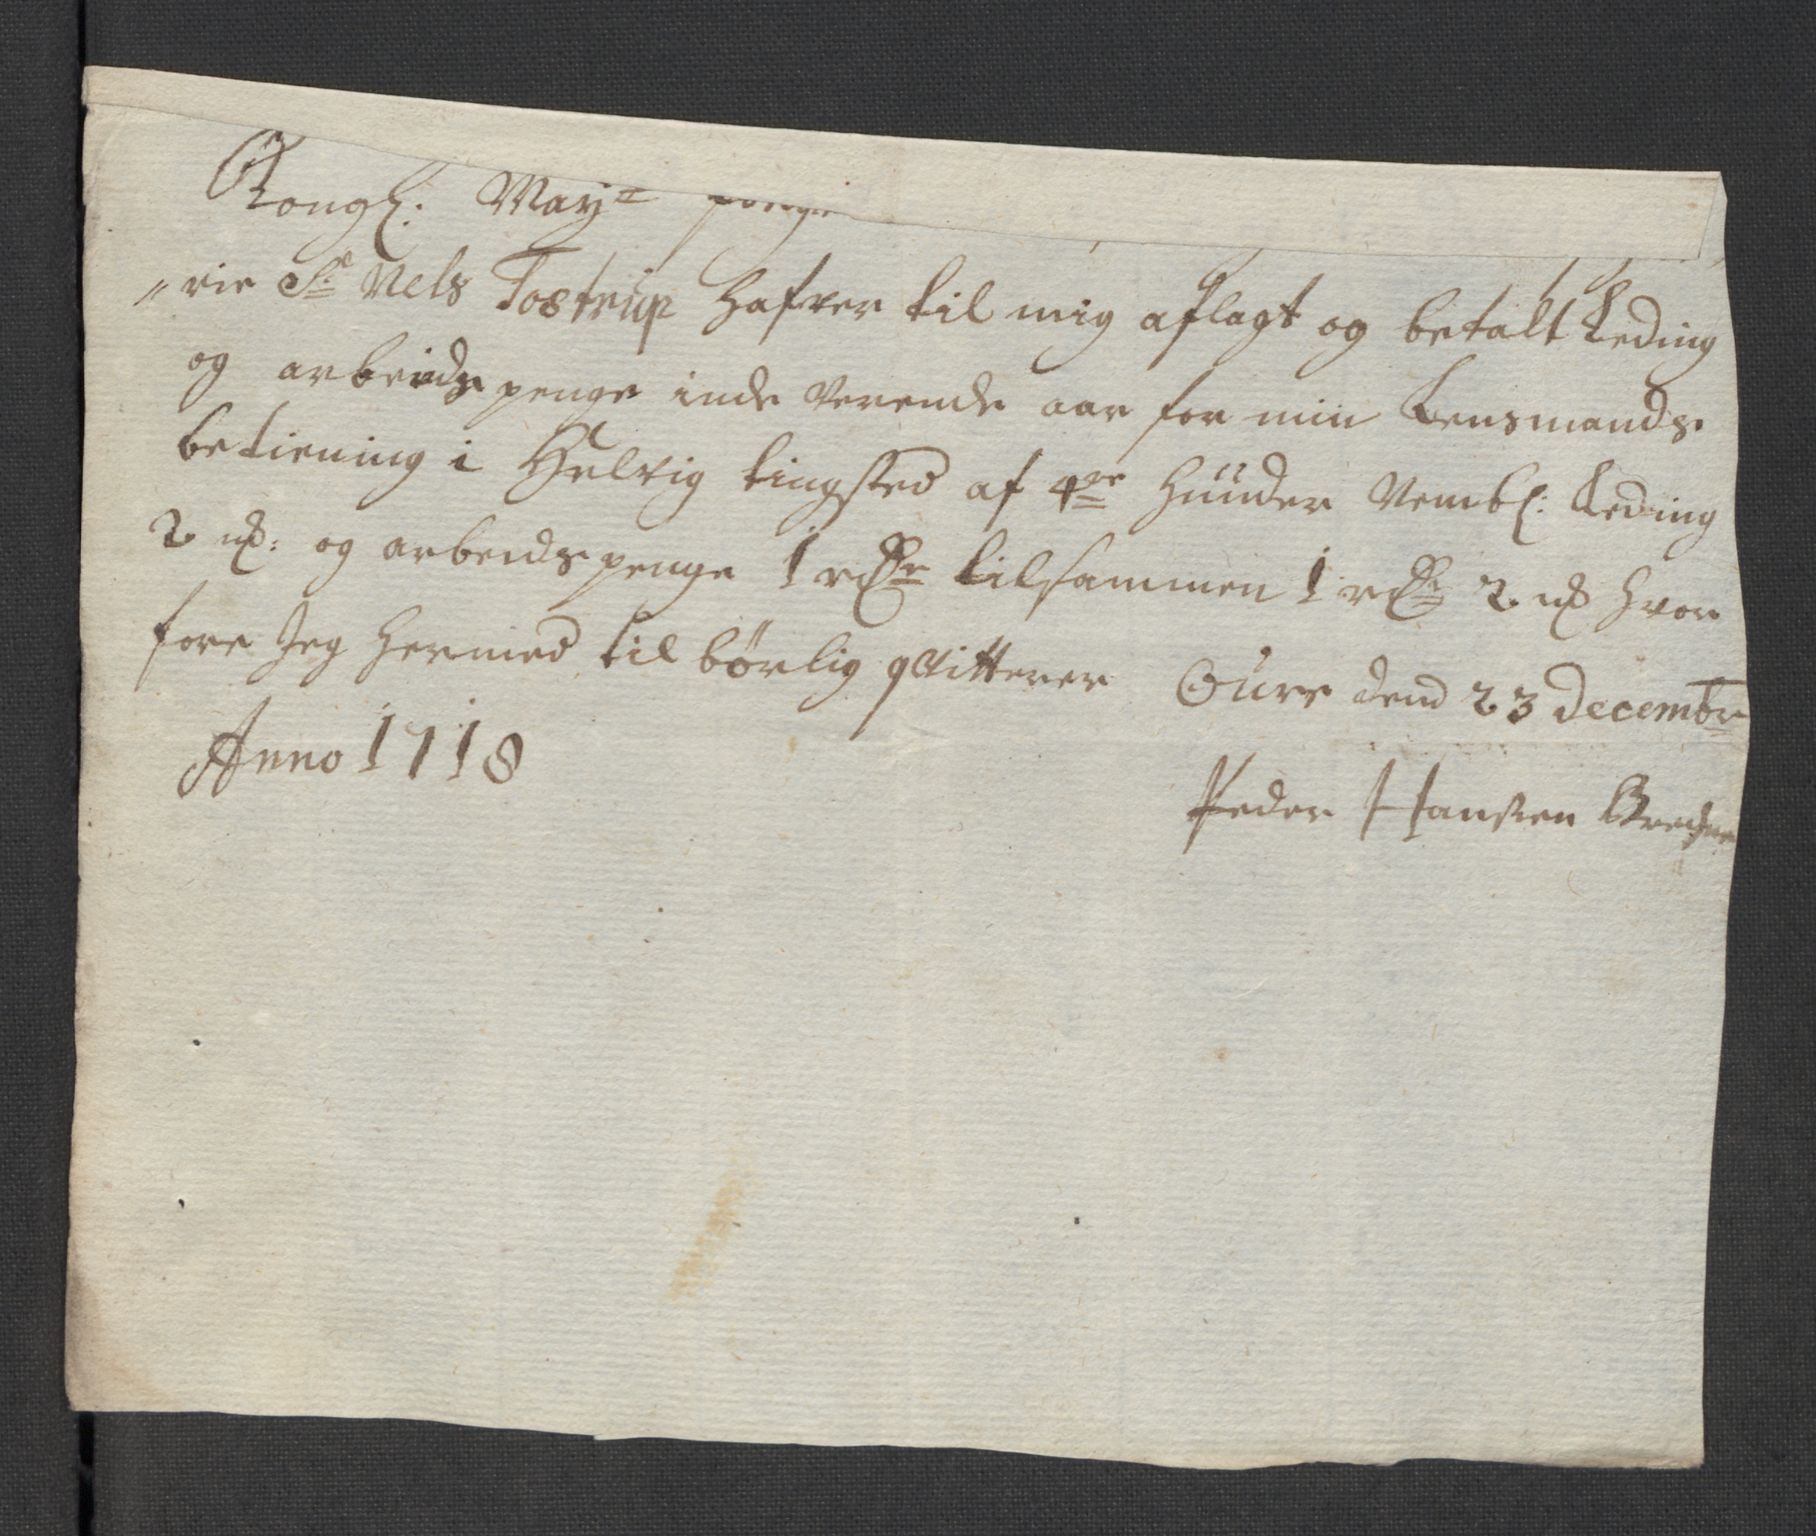 Kongl: May:tz
rie Sr Nels Tostrup hafver til mig aflagt og betalt Leding
og arbeids penge inde verende aar for min Lensmands
betiening i Helvig tingsted af 4re Hunder Vembl: Leding
2 mk: og arbeids penge 1 rdr tilsammen 1 rdr 2 mk hvor
fore Jeg hermed til børlig qvitterer Gure dend 23 decembr
Anno 1718
Peder Hansen